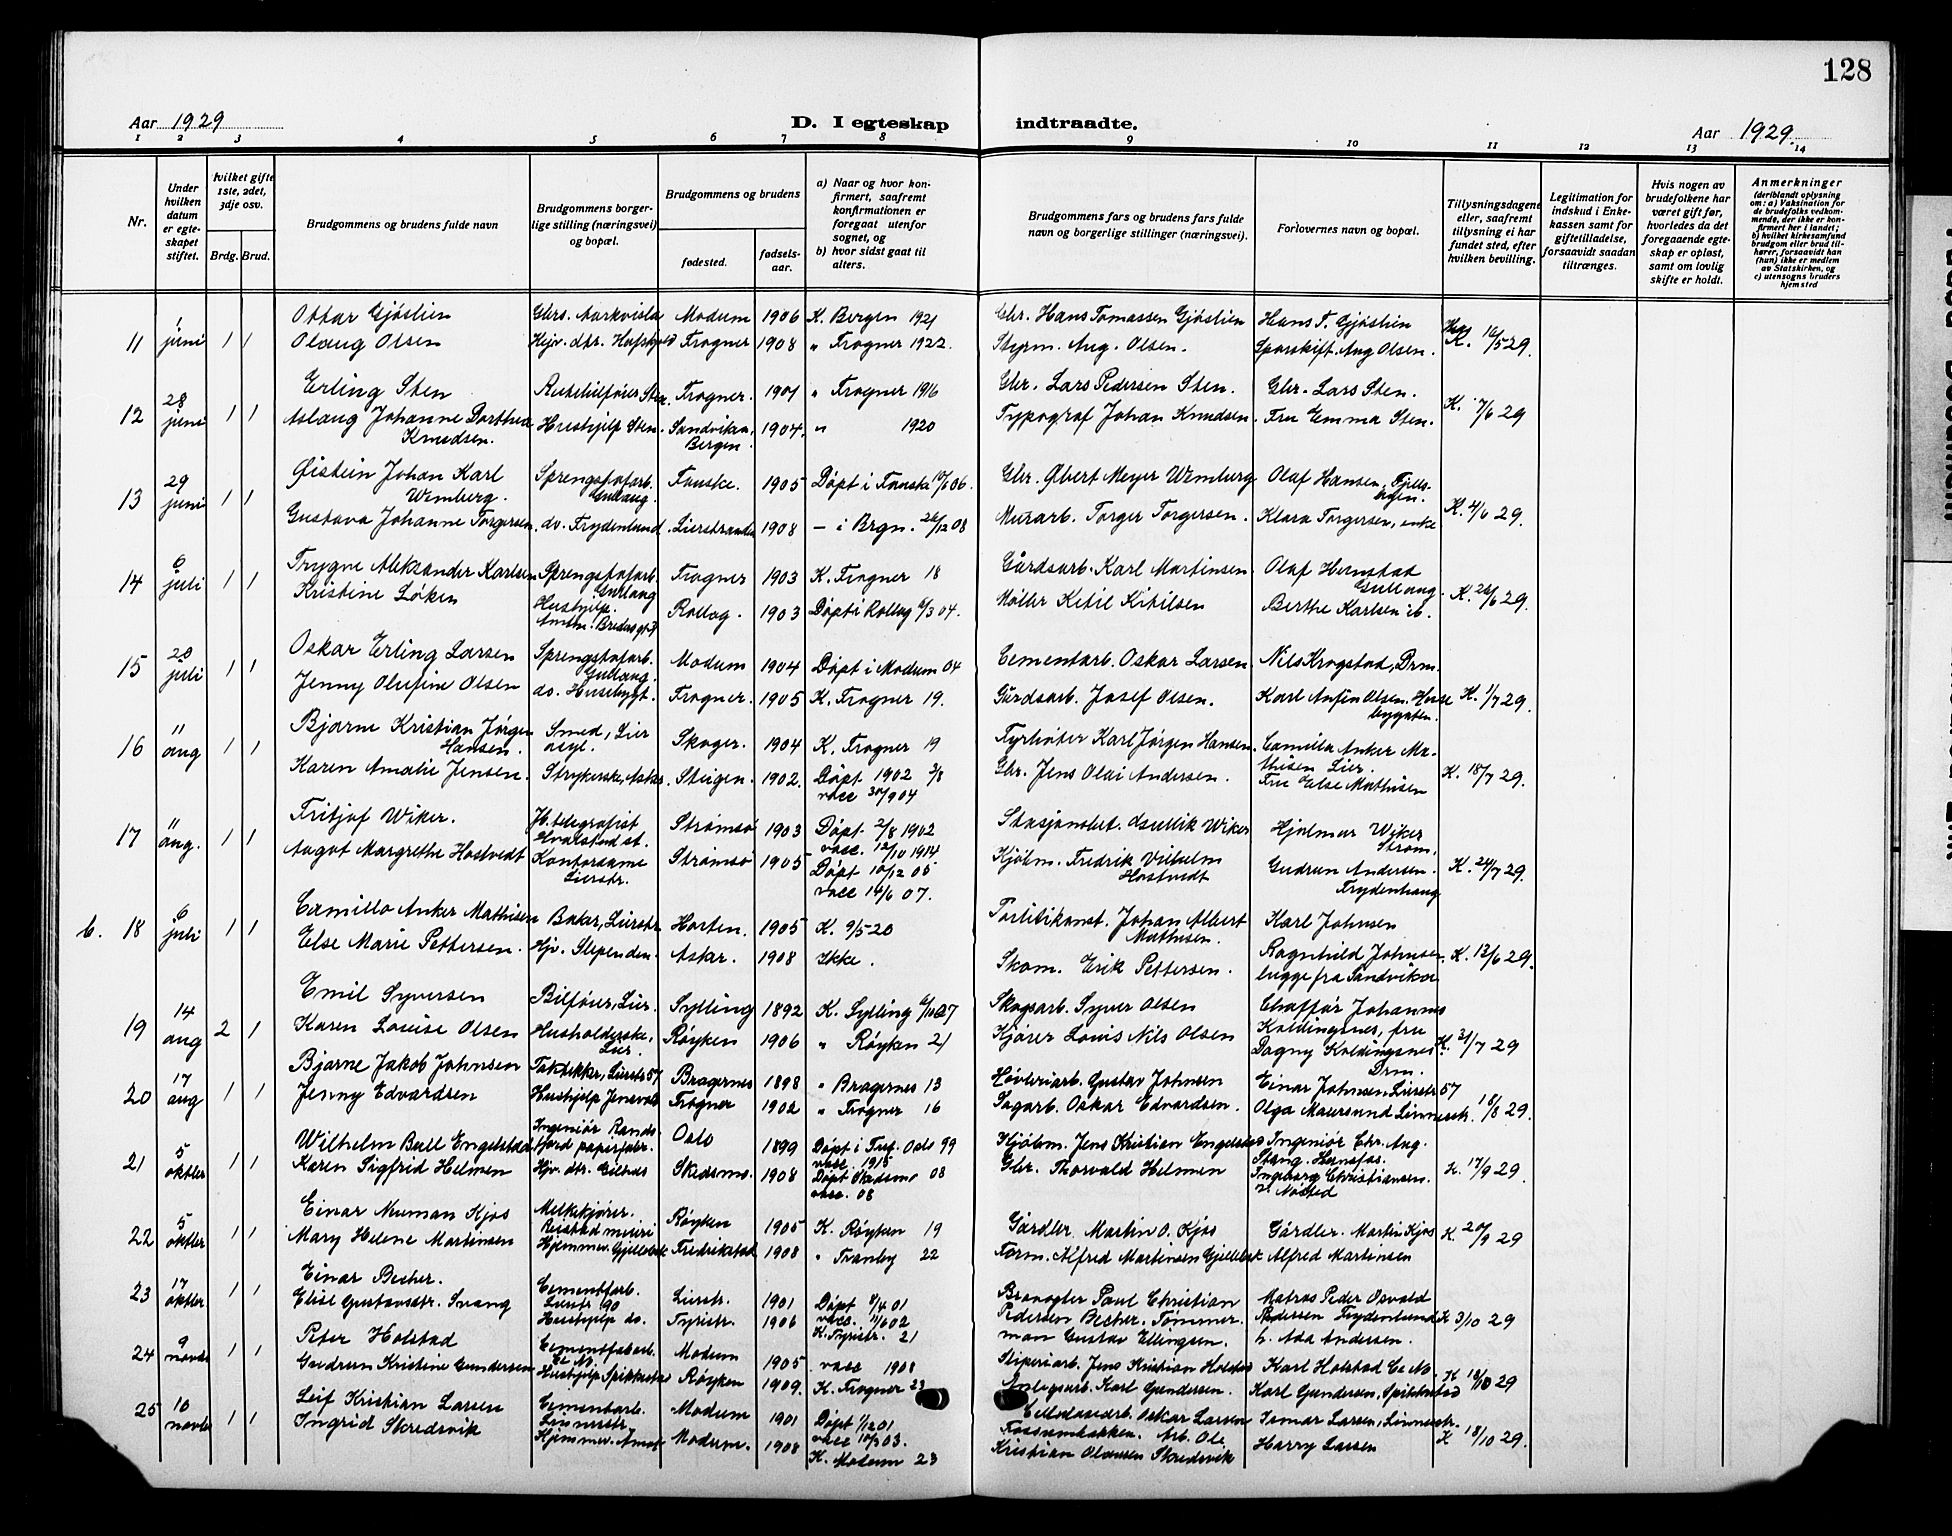 128
Aar 1929
D. I egteskap indtraadte.
Aar 1929.
1 2 3 4 5 6 7 8 9 10 11 12 13 14
Nr.
Under hvilken datum er egteskapet stiftet.
hvilket gifte 1ste, 2det, 3dje osv.
Brdg. Brud.
Brudgommens og brudens fulde navn
Brudgommens borgerlige stilling (næringsvei) og bopæl.
Brudgommens og brudens
fødested.
fødselsaar.
a) Naar og hvor konfirmert, saafremt konfirmationen er foregaat utenfor sognet, og
b) hvor sidst gaat til alters.
Brudgommens fars og brudens fars fulde navn og borgerlige stillinger (næringsvei).
Forlovernes navn og bopæl.
Tillysningsdagene eller, saafremt tillysning ei har fundet sted, efter hvilken bevilling.
Legitimation for indskud i Enkekassen samt for giftetilladelse, forsaavidt saadan tiltrænges.
Hvis nogen av brudefolkene har været gift før, hvorledes da det foregaaende egteskap er opløst, samt om lovlig skifte er holdt.
Anmerkninger
(deriblandt oplysning om: a) Vaksination for de brudefolks vedkommende, der ikke er konfirmert her i landet; b) hvilket kirkesamfund brudgom eller brud tilhører, forsaavidt han (hun) ikke er medlem av Statskirken, og c) utensogns bruders hjemsted
11 1 juni 1 1 Ottar Gjøslien Modum 1906 K. Bergen 1921 Gbr. Hans Tomassen Gjøslien Hans T. Gjøslien K. 16/5 29.
Olaug Olsen Frogner 1908 " Frogner 1922. Styrm. Aug. Olsen. Aug Olsen.
12 28 juni 1 1 Erling Sten Frogner. 1901 " Frogner 1916 Gbr. Lars Pedersen Sten. Gbr. Lars Sten. K. 7/6 29
Aslaug Johanne Dorthea Knudsen. Hushjelp Sten. Sandviken, Bergen. 1904. " 1920 Typograf Johan Knudsen. Fru Emma Sten.
13 29 juni 1 1 Øistein Johan Karl Wimberg. Sprengstofarb. Gullaug. Fauske. 1905 Døpt i Fauske Gbr. Meyer Wimberg Olaf Hansen, K. 4/6 29.
Gustava Johanne Torgersen. dv. Frydenlund. Lierstranden 1908 — i Brgn. 26/12 08 Murarb. Torger Torgersen. Klara Torgersen, enke
14 6 juli 1 1 Trygve Aleksander Karlsen Sprengstofarb. Gullaug Frogner 1903 K. Frogner 18 Gårdsarb. Karl Martinsen Olaf Hernstad Gullaug K. 26/6 29.
Kristine Løken Hushjelp. Rollag. 1903 Døpt i Rollag 6/3 04. Møller Ketil Ketilsen Berthe Karlsen ib.
15 20 juli 1 1 Oskar Erling Larsen Sprengstofarb. Gullaug. Modum 1904 Døpt i Modum 04 Cementarb. Oskar Larsen. Nils Krogstad, Drm. K. 1/7 29.
Jenny Olufine Olsen dv. Husebygt. Frogner. 1905 K. Frogner 19. Gårdsarb. Josef Olsen. Karl Anfin Olsen. Husebygaten.
16 11 aug 1 1 Bjarne Kristian Jørgen Hansen. Smed, Lier Skoger. 1904 K. Frogner 19 Fyrbøter Karl Jørgen Hansen. Camillo Anker Mathisen Lier. K. 18/7 29.
Karen Amalie Jensen. Strykerske, Asker. Steigen. 1902. Døpt 1902 3/8 vacc 30/9 04 Gbr. Jens Olai Andersen. Fru Else Mathisen
17 11 aug. 1 1 Fritjof Wiker. Jb. telegrafist Hvalstad st. Strømsø 1903 Døpt 2/8 1902 vacc. 12/10 1914 Wiker Hjalmar Wiker Strøm. K. 24/7 29.
Aagot Margrethe Hostvedt Kontordame Lierstr. Strømsø 1905 Døpt 10/12 05 vacc 14/6 07. Kjøbm. Fredrik Vilhelm Hostvedt Gudrun Andersen. Frydenhaug
b. 18 6 juli 1 1 Camillo Anker Mathisen Baker, Lierstr. Horten. 1905 K. 9/5 20 Johan Albert Mathisen. Karl Johnsen K. 13/6 29.
Else Marie Pettersen. Hjv. Slependen. Asker. 1908 Ikke. Skom. Erik Pettersen. Ragnhild Johnsen, begge fra Sandviken
19 14 aug 2 1 Emil Syversen Bilfører, Lier. Sylling 1892 K. Sylling Skogsarb. Syver Olsen Chaffør Johannes Koldingsnes, fru K. 31/7 29
Karen Louise Olsen Husholderske, Lier. Røyken 1906 " Røyken 21 Kjører Louis Nils Olsen Dagny Koldingsnes Drm.
20 17 aug 1 1 Bjarne Jakob Johnsen Taktekker, Lierstr 57 Bragernes 1898 " Bragernes 13 Høvleriarb. Gustav Johnsen Einar Johnsen Lierstr 57 18/8 29.
Jenny Edvardsen Hushjelp Frogner 1902 " Frogner 16 Sagarb. Oskar Edvardsen. Olga Maursund
21 5 oktbr 1 1 Wilhelm Ball Engelstad Ingeniør Randsfjord papirfabr. Oslo 1899 Døpt i Oslo 99 vacc. 1915 Kjøbm. Jens Kristian Engelstad Ingeniør Chr. Aug. Stang. K. 17/9 29
Karen Sigfrid Helmen Hjv. dtr. Skedsmo. 1908 Døpt Skedsmo 08 vacc. 08 Gbr. Thorvald Helmen Ingeborg Christiansen. v. Nøsted
22 5 oktbr 1 1 Einar Neuman Kjos Melkekjører. Reistad meieri Røyken 1905 K. Røyken 19 Gårdbr. Martin O. Kjos Gårdbr. Martin Kjos K. 20/9 29
Mary Helene Martinsen Hjemmev. Gjellebæk Fredrikstad 1908 " Tranby 22 Form. Alfred Martinsen Gjellebæk Alfred Martinsen
23 17 oktbr. 1 1 Einar Becher. Cementfarb. Lierstr 90 Lierstr. 1901 Døpt 8/4 01 Paul Christian Pedersen Becher. Matros Peder Osvald Pedersen Frydenlund K 3/10 29
Elise Gustavsdtr. Svang Hushjelp do. Tyristr. 1906 K. Tyristr. 21 Tømmerman Gustav Ellingsen. h. Ada Andersen.
24 9 novbr 1 1 Peter Holstad Cementfabarb. Modum 1905 vacc 1908 Sliperiarb. Jens Kristian Holstad Karl Holstad K 18/10 29
Gudrun Kristine Gundersen Hushjelp Spikkestad Røyken 1909. K. Frogner 23 Anlegsarb. Karl Gundersen. Karl Gundersen, Spikkestad
25 10 novbr 1 1 Leif Kristian Larsen Cementarb. Modum 1901 Døpt 1/12 01 Cellulosearb. Oskar Larsen Ismar Larsen, K 18/10 29.
Ingrid Skredsvik Modum. 1908 K. Modum 23 Arb. Ole Kristian Olausen Skredsvik Harry Larsen